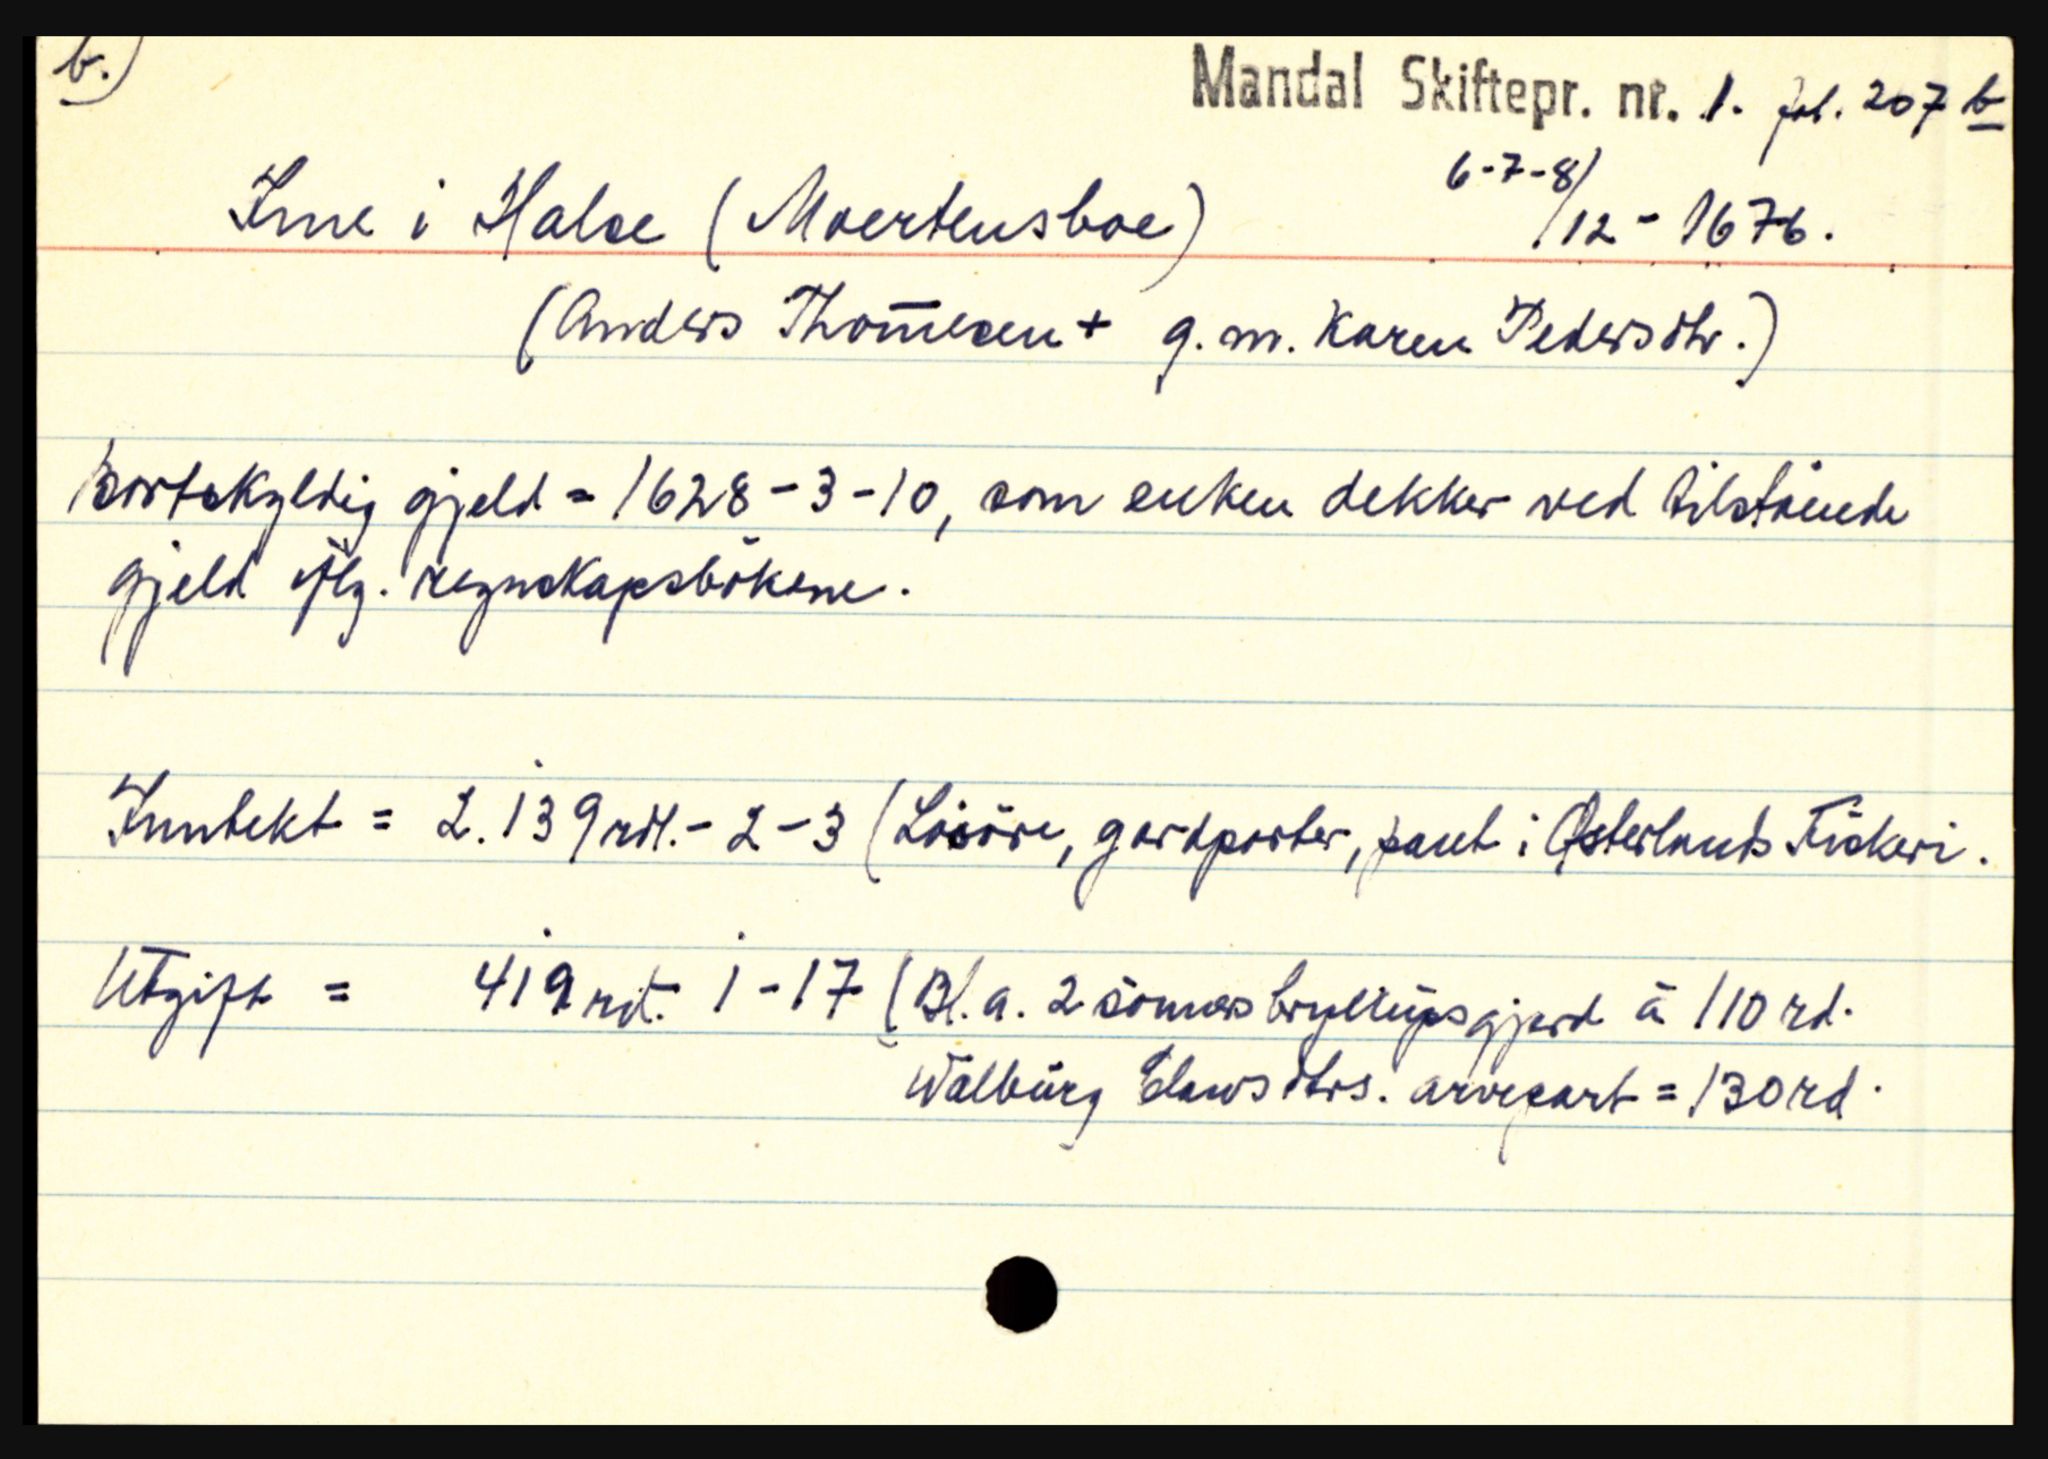 b.)
Mandal Skiftepr. nr. 1. fol. 207 b
Ime i Halse (Moertensboe) 6-7-8/12 - 1676.
(Anders Thom̅esen + g. m. Karen Pedersdtr.)
bortskyldig gjeld = 1628 - 3 - 10, som enken dekker ved tilstående
gjeld iflg. regnskapsbökene.
Inntekt = 2.139 rdl. - 2 - 3 (Lösöre, gardparter, pant i Østerlands Fiskeri.
Utgift = 419 rdl. 1 - 17 (Bl. a. 2 sönners bryllupsgjerd à 110 rd.
Walburg Clawsdtrs. arvepart = 130 rd.